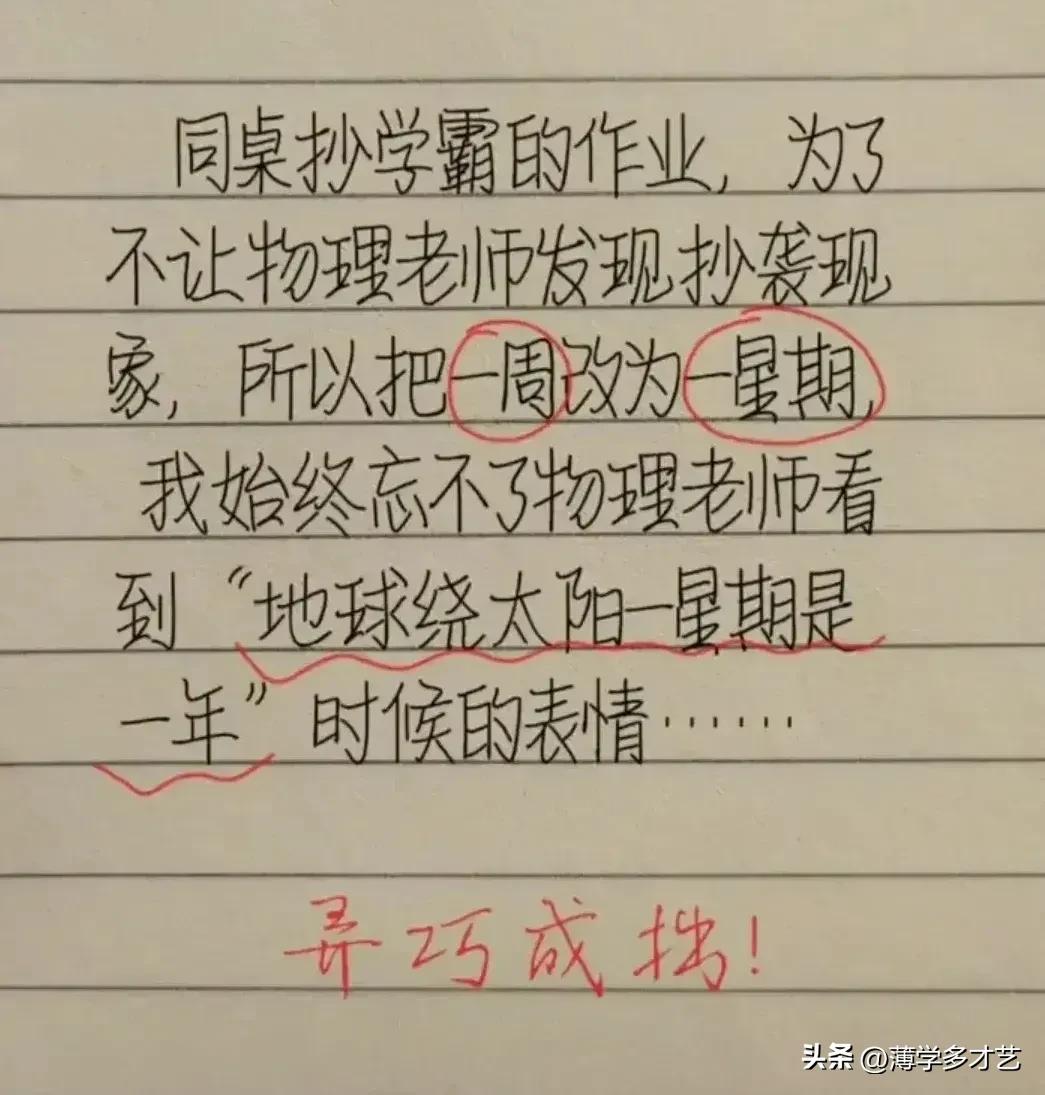 同桌抄学霸的作业，为了
不让物理老师发现抄袭现
象，所以把一周改为一星期，
我始终忘不了物理老师看
到“地球绕太阳一星期是
一年”时候的表情……
弄巧成拙！
头条 @薄学多才艺